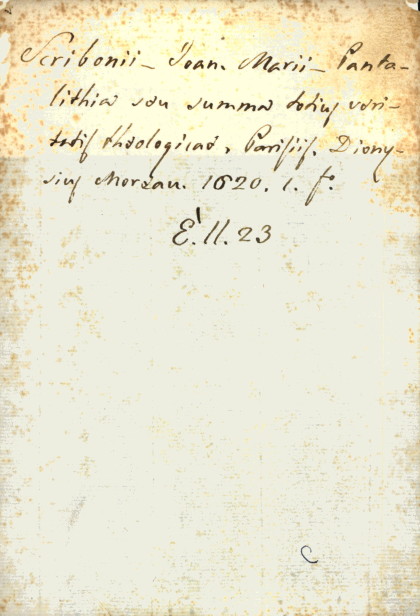 Scribonii - Joan. Marii - Panta-
lithia seu summa totius veri-
tatis theologicae, Parisiis. Diony-
sius Moreau. 1620. 1. fo.
E. II. 23
C